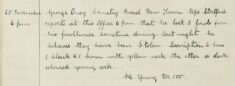 25 November George Grey Cemetery Road New Town Nye Stratford
6 pm reports at this Office 6 pm that he lost 2 fowls from
his fowlhouse sometime during last night he
believes they have been Stolen Description 2 hens
1 black & 1 brown with yellow neck the other a dark
coloured young cock